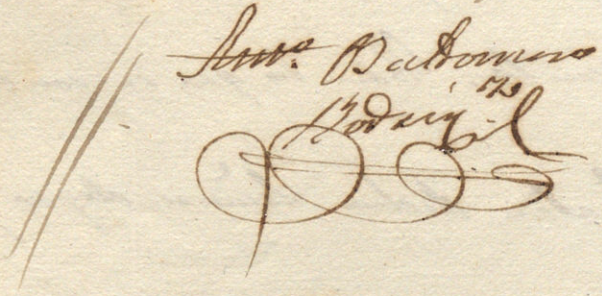 Anto. Baltomero
Rodrigz